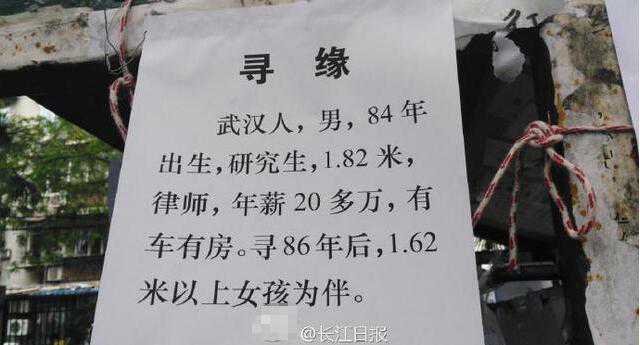 寻缘
武汉人，男，84年
出生，研究生，1.82米，
律师，年薪20多万，有
车有房。寻86年后，1.62
米以上女孩为伴。
@长江日报